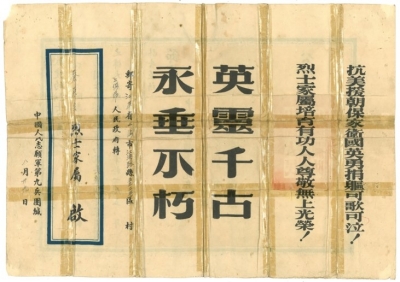 抗美援朝保家衛國英勇捐軀可歌可泣！
烈士家屬培育有功人人尊敬無上光榮！
英靈千古
永垂不朽
郵寄 省 市 縣 區 村
人民政府轉
烈士家屬 啟
中國人民志願軍第九兵團緘
月 日